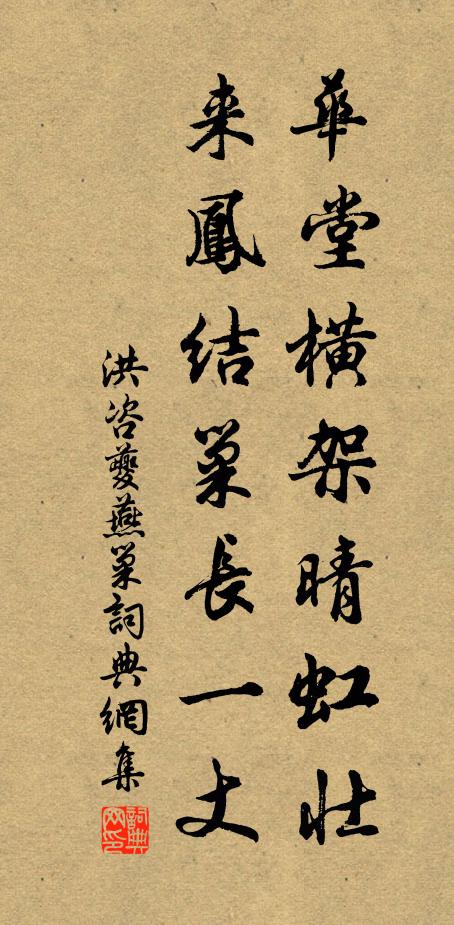 華堂橫架晴虹壯
来鳳結巢長一丈
洪咨夔燕巢詞典網集
詞典网印